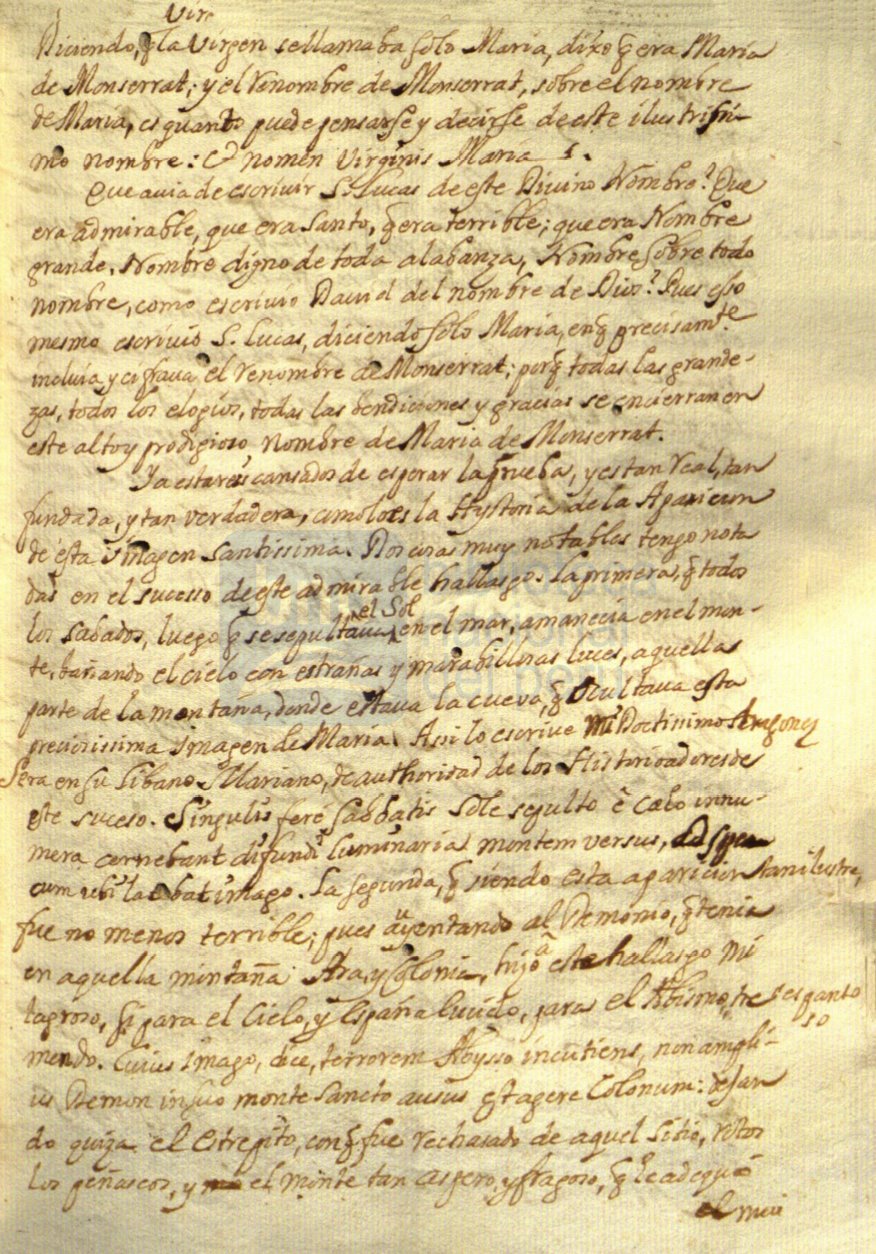 Vir
Diciendo, q̃ la Virgen se llamaba solo Maria, dixo q̃ era Maria
de Monserrat; y el renombre de Monserrat, sobre el nombre
de Maria, es quanto puede pensarse y decirse de este ilustrissi-
mo nombre: & nomen Virginis Maria
Que avia de escrivir S. Lucas de este Divino Nombre? Que
era admirable, que era santo, q̃ era terrible; que era Nombre
grande, Nombre digno de toda alabanza, Nombre sobre todo
nombre, como escrivio David del nombre de Dios? Pues esso
mesmo escrivio S. Lucas, diciendo solo Maria, en q̃ precisamte
incluia y cifrava el renombre de Monserrat; porq̃ todas las grande-
zas, todos los elogios, todas las bendiciones y gracias se encierran en
este alto y prodigioso nombre de Maria de Monserrat.
Ya estareis cansados de esperar la prueba, y es tan real, tan
fundada, y tan verdadera, como lo es la Hystoria de la Aparicion
de esta imagen santissima. Dos cosas muy notables tengo nota
das en el sucesso de este admirable hallasgo. la primera, q̃ todos
los sabados, luego q̃ se sepultava el Sol en el mar, amanecia en el mon-
te, bañando el cielo con estrañas y marabillosas luces, aquella
parte de la montaña, donde estava la cueva, q̃ ocultava esta
preciosissima imagen de Maria. Assi lo escrive mi Doctissimo Aragones
sera en su Libano Mariano, de authoridad de los Historiadores de
este suceso. Singulis feré sabbatis sole sepulto é Cœlo innu-
mera cernebant difundi luminaria montem versus,
cum ubi latebat imago. La segunda, q̃ siendo esta aparicion tan ilustre,
fue no menos terrible; pues auyentando al Demonio, q̃ tenia
en aquella montaña Ara, y Colonia, hizo a este hallasgo mi
lagroso, si para el Cielo, y España lucido, para el Abismo tre
mendo. espantoso Cuius imago, dice, terrorem Abysso incutiens, non ampli-
us Demon in suo monte Sancto ausus est agere Colonum: dejan
do quiza el estrepito, con q̃ fue rechasado de aquel sitio, rotos
los peñascos, y el monte tan aspero, y fragoso, q̃ le adequó
el